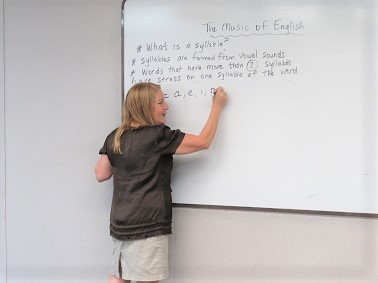 The Music of English
# What is a syllable?
# syllables are formed from vowel sounds
# Words that have more than ② syllable
have stress on one syllable of the word.
= a, e, i,